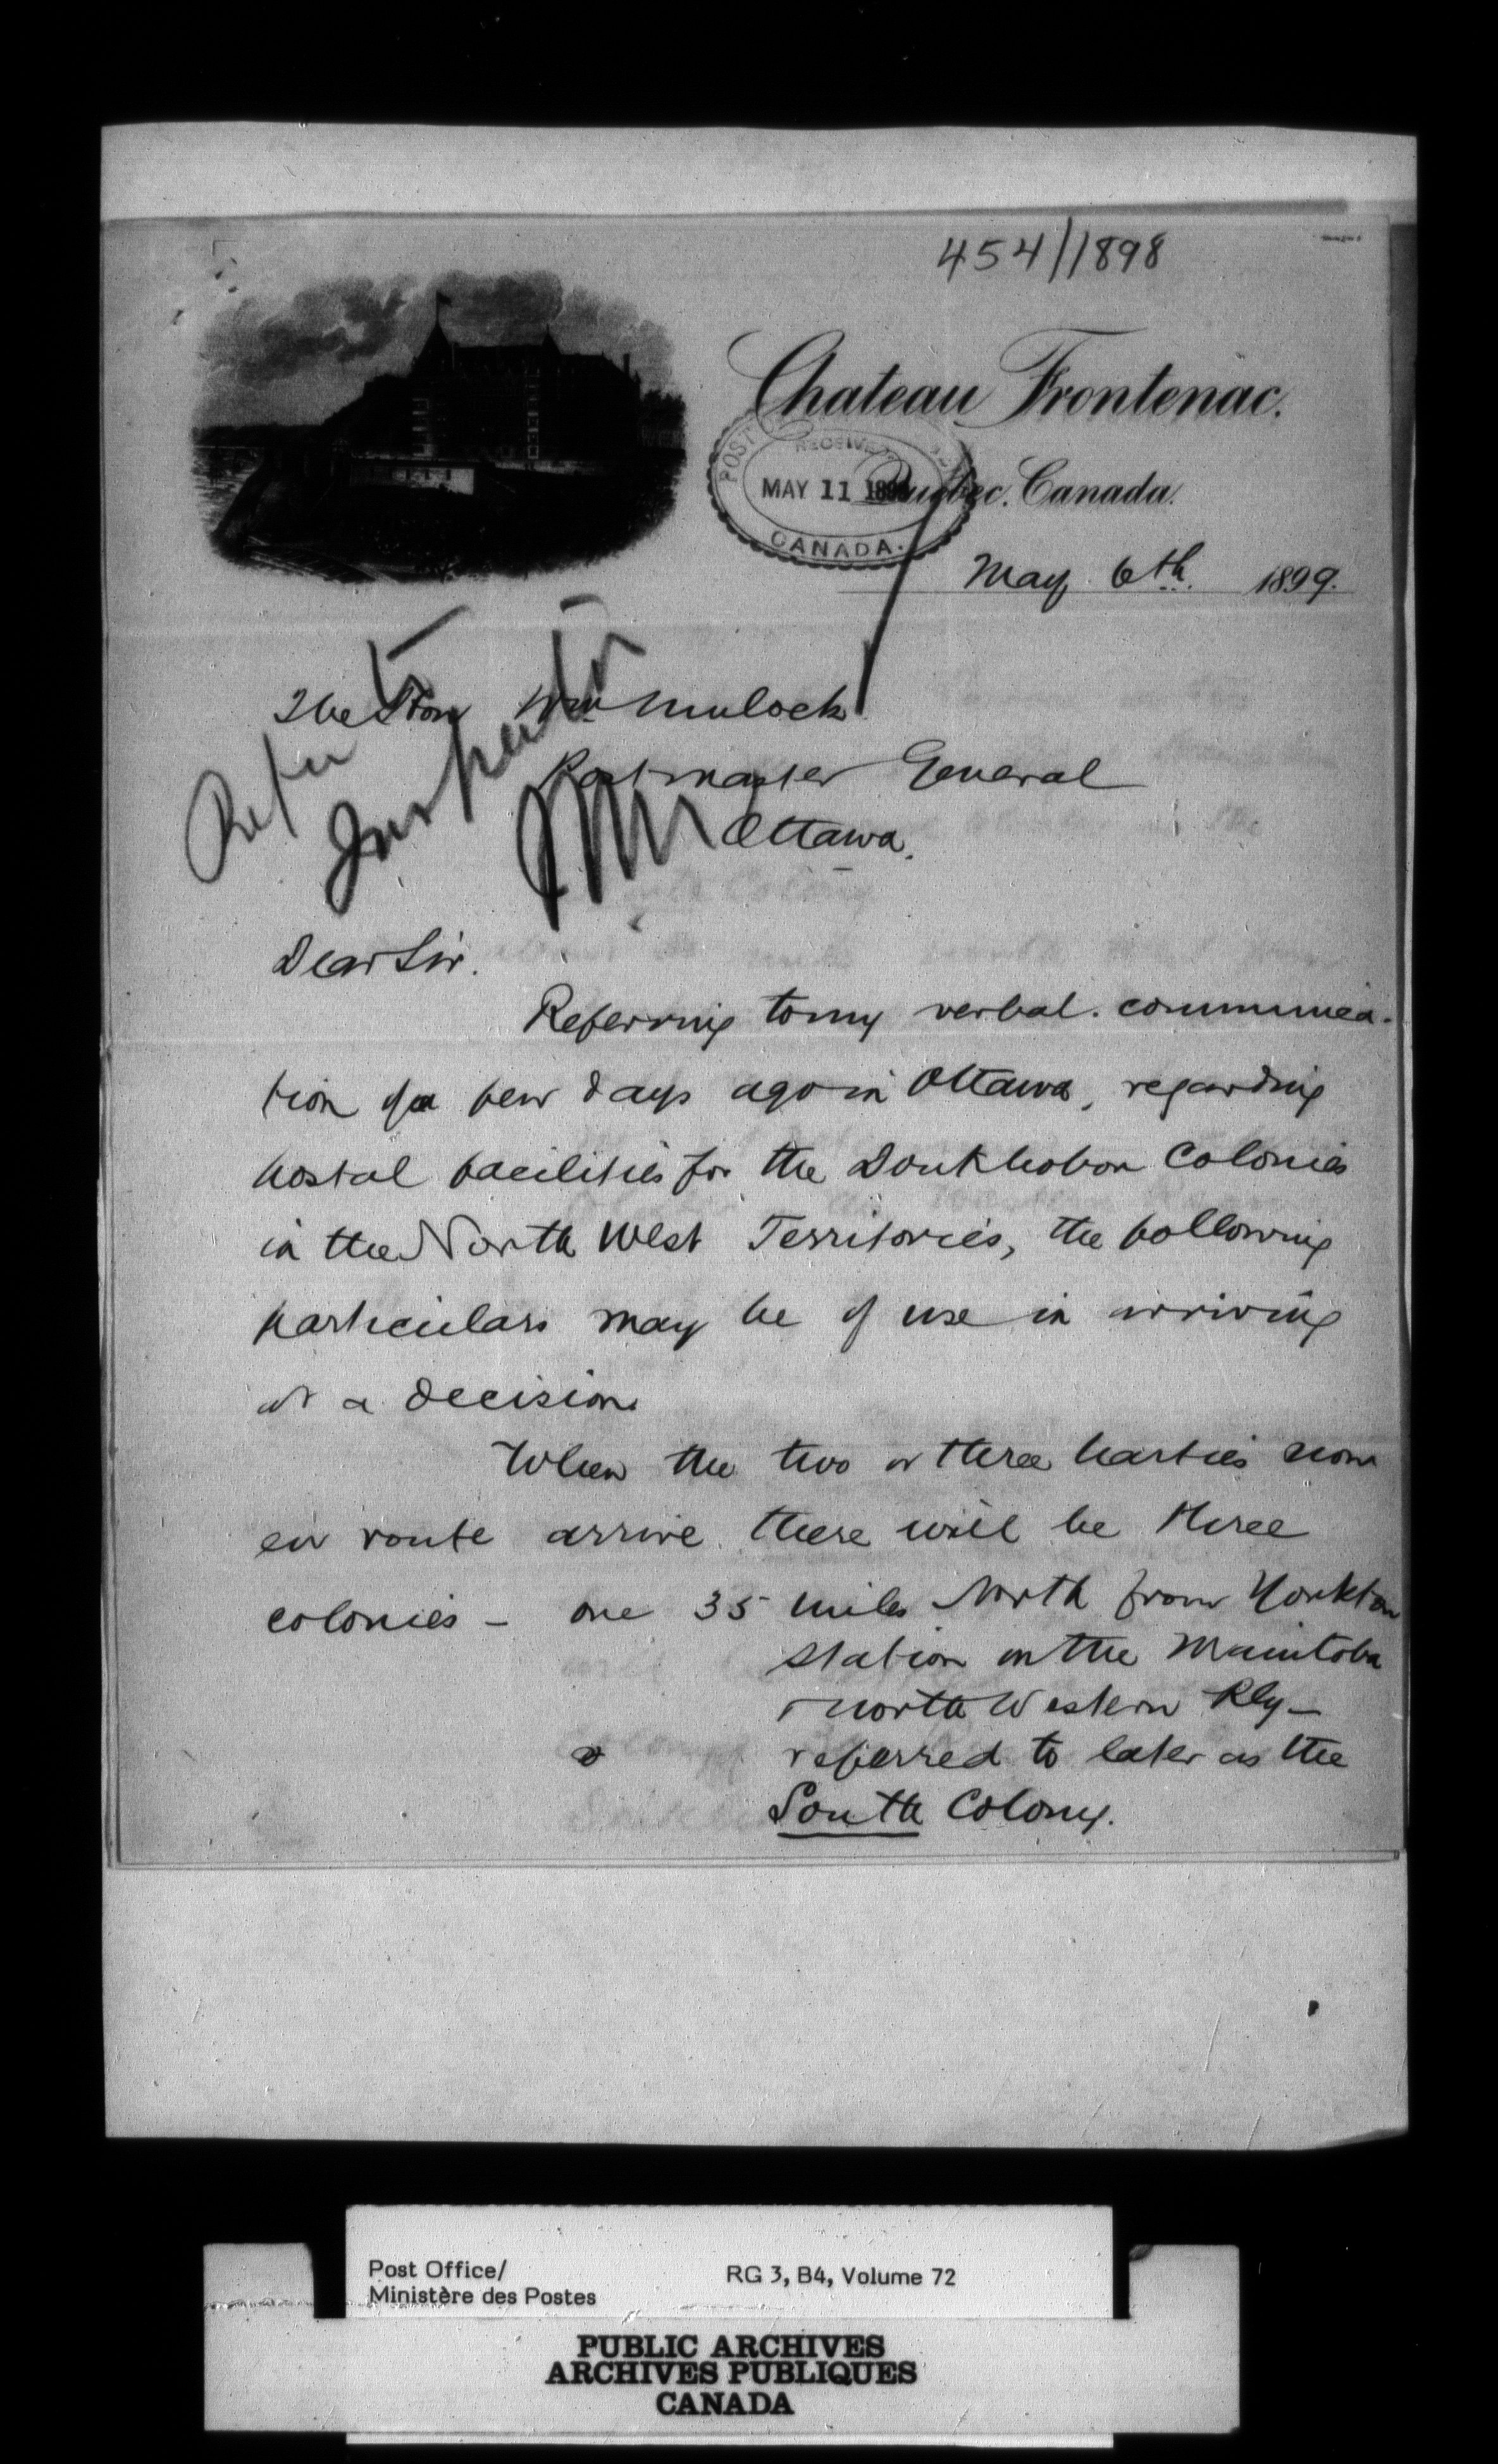 454/1898
Chateau Frontenac.
Quebec. Canada.
POST RECEIVED
MAY 11 1899
CANADA.
May 6th. 1899.
The Hon Wm Mulock
Postmaster General
Ottawa.
Refer to
Inspector
Dear Sir.
Referring to my verbal. communica-
tion of a few days ago in Ottawa, regarding
postal facilities for the Doukhobor Colonies
in the North West Territories, the following
particulars may be of use in arriving
at a decision
When the two or three parties now
en route arrive there will be three
colonies - one 35 miles North from Yorkton
station on the Manitoba
North Western Rly -
referred to later as the
South Colony.
Post Office/
Ministère des Postes
RG 3, B4, Volume 72
PUBLIC ARCHIVES
ARCHIVES PUBLIQUES
CANADA